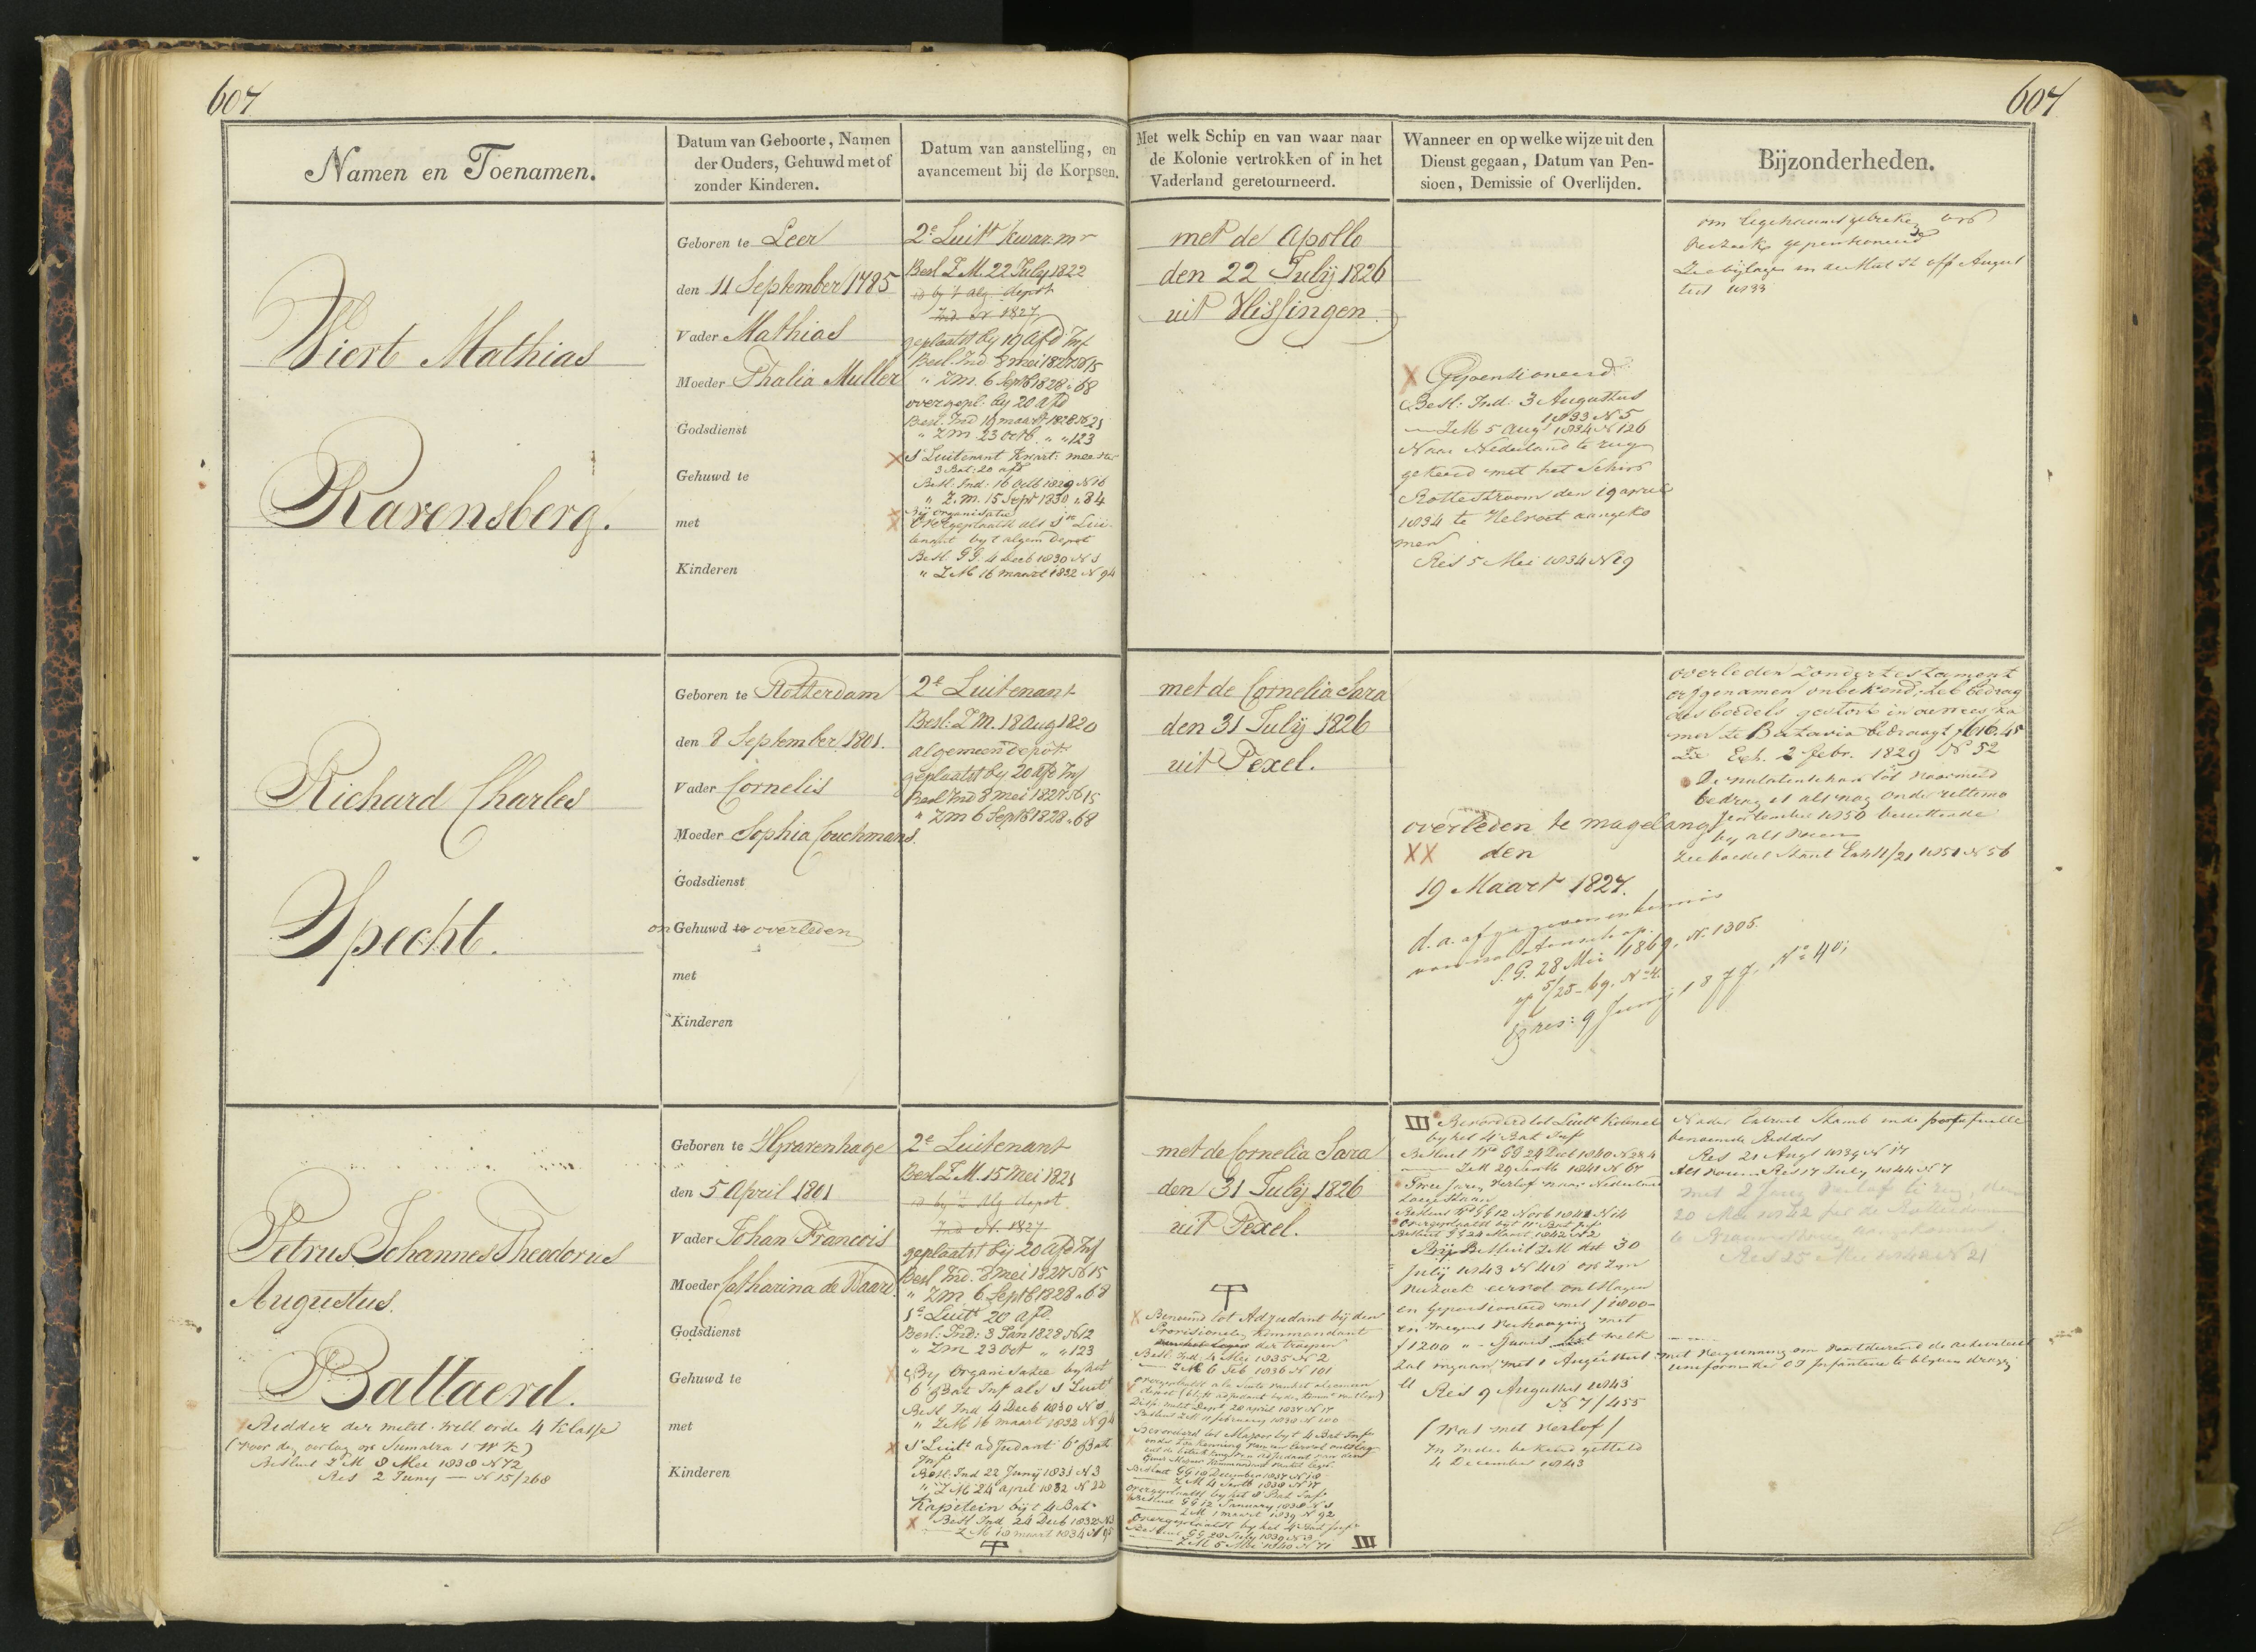 607
607
Namen en Toenamen.
Datum van Geboorte, Namen
der Ouders, Gehuwd met of
zonder Kinderen.
Datum van aanstelling, en
avancement bij de Korpsen.
Met welk Schip en van waar naar
de Kolonie vertrokken of in het
Vaderland geretourneerd.
Wanneer en op welke wijze uit den
Dienst gegaan, Datum van Pen-
sioen, Demissie of Overlijden.
Bijzonderheden.
Wiert Mathias
Ravensberg.
Geboren te Leer
den 11 September 1785
Vader Mathias
Moeder Thalia Muller
Godsdienst
Gehuwd te
met
Kinderen
2e Luitt Kwar. mr
Besl Z.M. 22 July 1822
id by 't alg depot
Ind N 1827
geplaatst by 19 afd Inf
Besl. Ind. 8 mei 1827 N 15
" ZM. 6 Septb 1828 " 68
overgepl. by 20 afd
Besl. Ind 19 maart 1828 N 21
" ZM 23 octb. " " 123
1e Luitenant Kwart: meester
3 Bat: 20 afd
Besl. Ind: 16 Octb 1829 N 16
" Z.M. 15 Sept 1830 " 84
Bij organisatie
Overgeplaatst als 1e Lui-
tenant by t algem Depot
Besl. GG. 4 Decb 1830 N 1
" ZM 16 maart 1832 N 94
met de Apollo
den 22 July 1826
uit Vlissingen.
X Gepensioneerd
Besl: Ind: 3 Augustus
1833 N 5
ZM 5 Augt 1834 N 126
Naar Nederland terug
gekeerd met het Schip
Rotterstroom den 19 april
1834 te Helvoet aangeko
men
Res 5 Mei 1834 N 19
om ligchaamsgebreken op
verzoek gepensioneerd
Zie bijlagen in de Off August
1833
Richard Charles
Specht.
Geboren te Rotterdam
den 8 September 1801.
Vader Cornelis
Moeder Sophia Couchmans.
Godsdienst
on Gehuwd te overleden
met
Kinderen
2e Luitenant
Besl: Z.M. 18 aug 1820
algemeen depôt
geplaatst by 20 afd Inf
Besl Ind 8 mei 1827 N 15
" ZM 6 Septb 1828 " 68
met de Cornelia Sara
den 31 July 1826
uit Texel.
overleden te magelang
XX den
19 Maart 1827.
d. a. afgegeven
S.G. 28 Mei 1869, N. 1305.
5/25-69, No 4.
Exres: 9 Junij 1877, No 40;
overleden zonder testament
erfgenamen onbekend, het bedrag
des boedels gestort in de wees ka
mer te Batavia bedraagt f 616.45
Zie Exh. 2 febr. 1829 N 52
De nalatenschap tot voormeld
bedrag is als nog onder ultimo
September 1830 berustende
by als voren
Petrus Johannes Theodorus
Augustus.
Battaerd.
X Ridder der milit. Will orde 4 Klasse
(voor den oorlog op Sumatra 1 W K)
Besluit ZM 8 Mei 1838 N 72
Res 2 Juny — N 15/268
Geboren te 'sGravenhage
den 5 April 1801
Vader Johan Francois
Moeder Catharina de Waard.
Godsdienst
Gehuwd te
met
Kinderen
2e Luitenant
Besl Z.M. 15 Mei 1821
id by 't Alg. depot.
Ind N. 1827
geplaatst bij 20 afd Inf
Besl Ind. 8 mei 1827 N 15
" ZM 6 Septb 1828 " 68
1e Luitt 20 afd.
Besl. Ind: 3 Jan 1828 N 12
" ZM 23 Oct " " 123
X By Organisatie by het
6 Bat Inf als 1 Luitt
Besl Ind 4 Decb 1830 N 1
" ZM 16 maart 1832 N 94
X 1e Luitt adjudant 6e Bat
Inf
Besl. Ind 22 Junij 1831 N 3
" ZM 24 april 1832 N 22
Kapitein bij t 4 Bat
X Besl Ind 24 Decb 1832 N 3
ZM 18 maart 1834 N 95
met de Cornelia Sara
den 31 July 1826
uit Texel.
X Benoemd tot Adjudant bij den
Provisionelen Kommandant
der troepen
Besl. Ind. 4 Mei 1835 N 2
ZM 6 Feb 1836 N 101
Bevorderd tot Majoor by t 4 Bat Inf
Besluit GG 18 December 1837 N 18
ZM 4 Septb 1838 N 17
overgeplaatst by het 8 Bat Inf
Besluit GG 12 January 1838 N 1
ZM 1 maart 1839 N 92
overgeplaatst by het 4 Bat Inf
Besluit GG 28 July 1839 N 3
ZM 5 Mei 1840 N 71 III
III Bevorderd tot Luitt Kolonel
by het 4 Bat Inf
Besluit Wd GG 29 Decb 1840 N 284
ZM 29 Septb 1841 N 67
Twee Jaren Verlof naar Nederland
toegestaan
Besluit Wd GG 12 Novb 1841 N 14
overgeplaatst byt 11 Bat Inf
Besluit GG 24 Maart 1842 N 2
Bij Besluit ZM dd 30
July 1843 N 41 op zyn
verzoek eervol ontslagen
en Gepensioneerd met f 1800-
en wegens verhooging met
f 1200 " - 'sjaars welk
zal ingaan met 1 Augustus
Res 9 Augustus 1843
N 7/455
(Was met verlof)
In Indie bekend gesteld
4 December 1843
benoemde Ridders
Res 21 Augt 1839 N 17
Als voren Res 17 July 1844 N 7
met 2 Jaren Verlof terug, den
20 Mei 1842
Res 25 Mei 1842 N 21
met vergunning om voortdurend de activiteit
uniform der OI Infanterie te blyven dragen